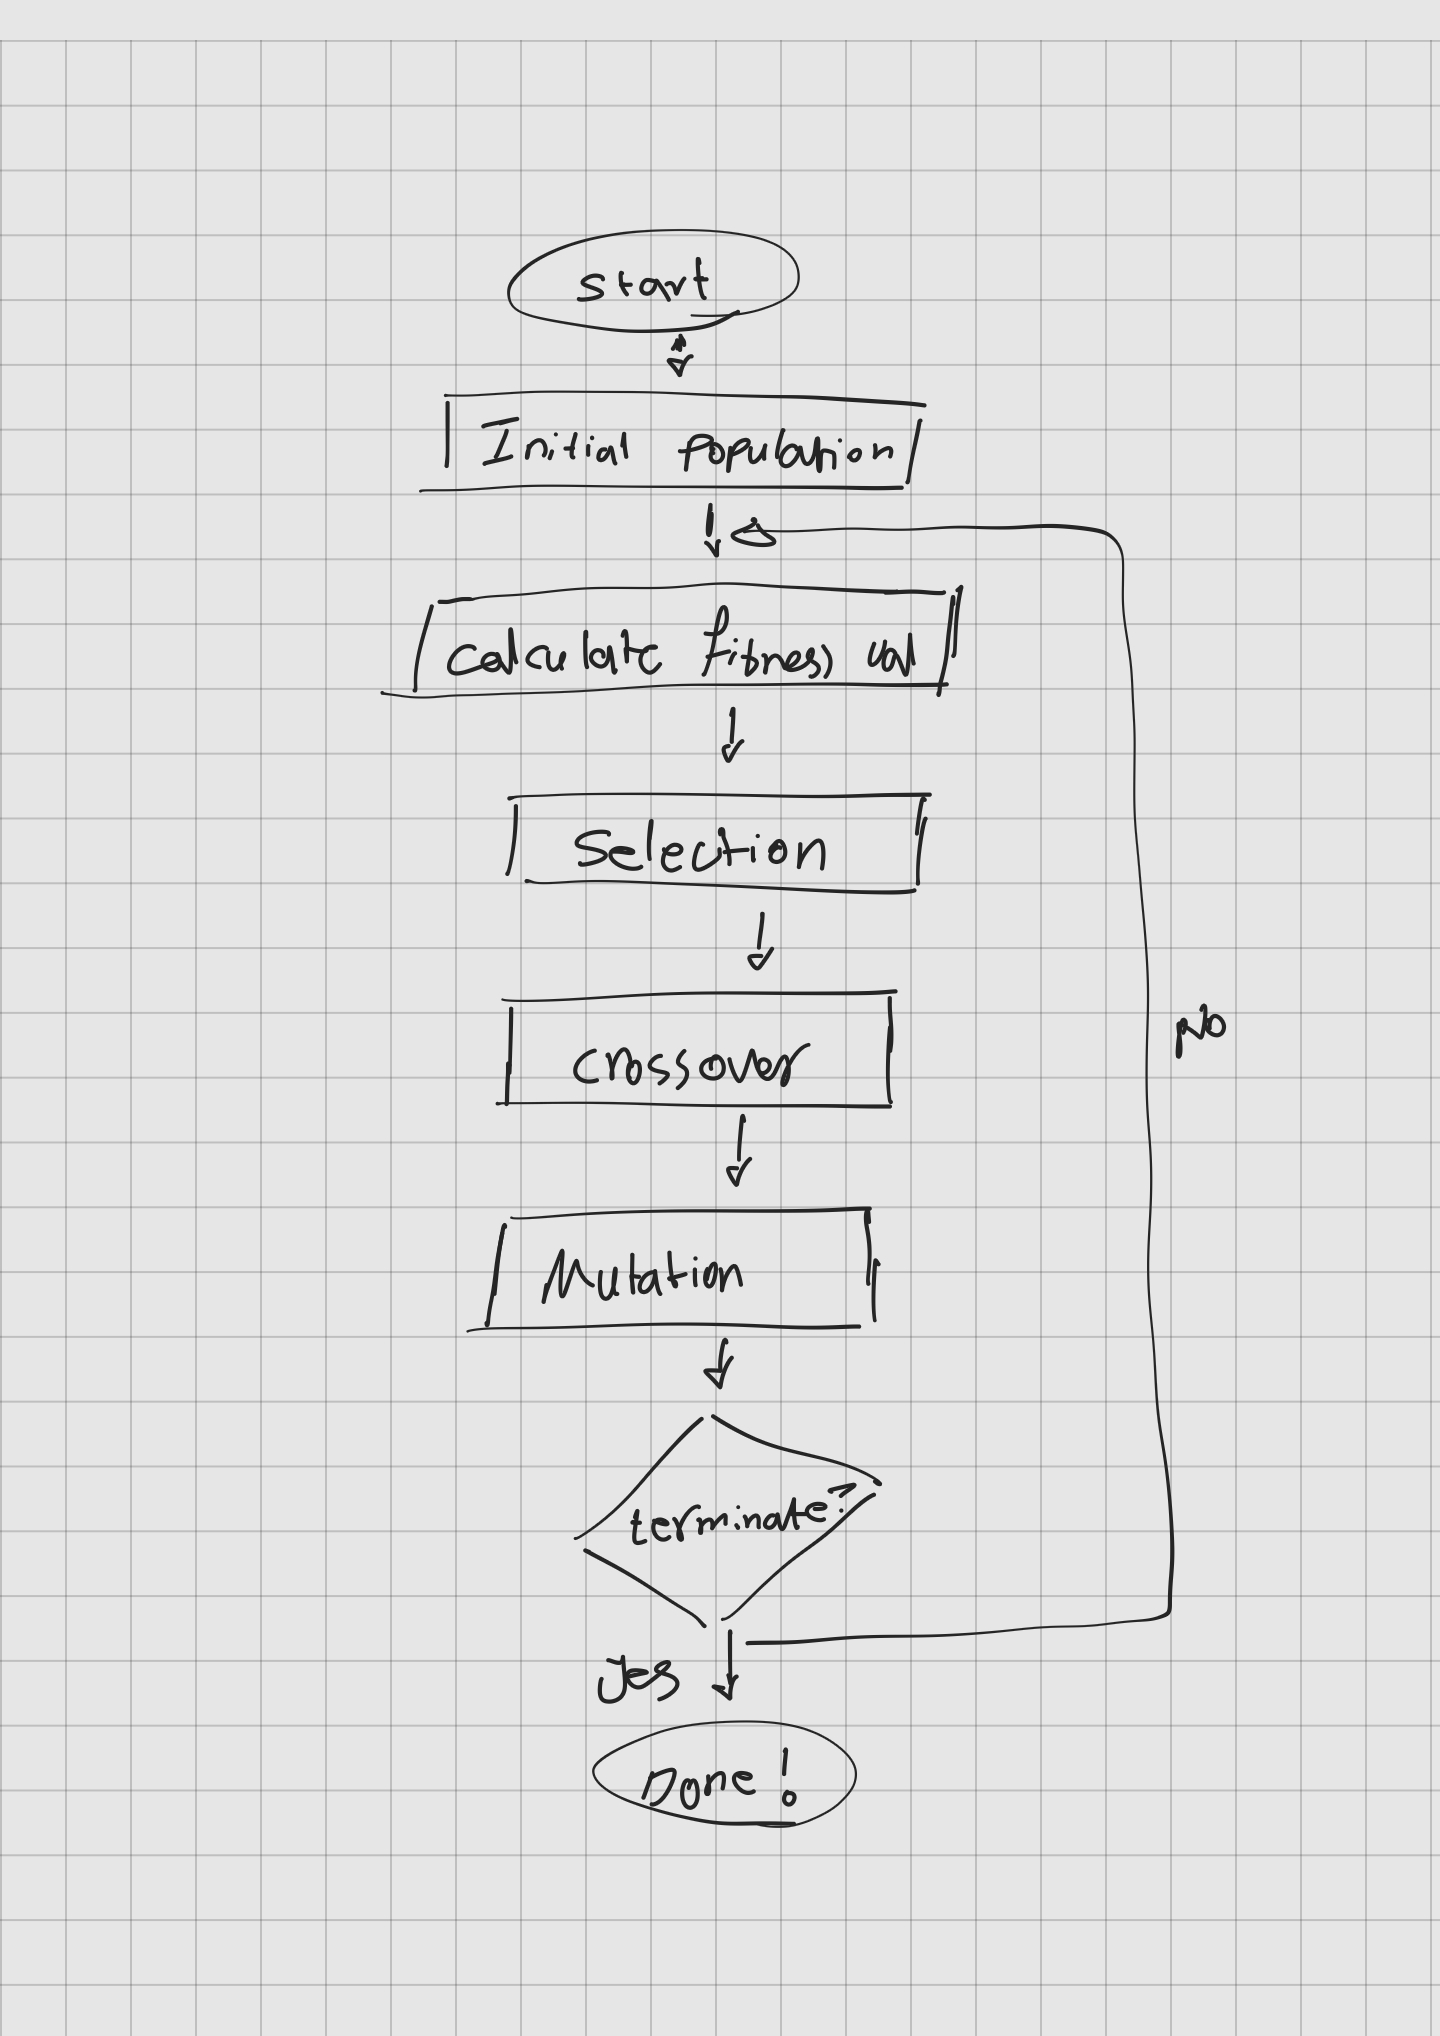 start
Initial population
calculate fitness val
Selection
crossover
Mutation
terminate?
No
Yes
Done!